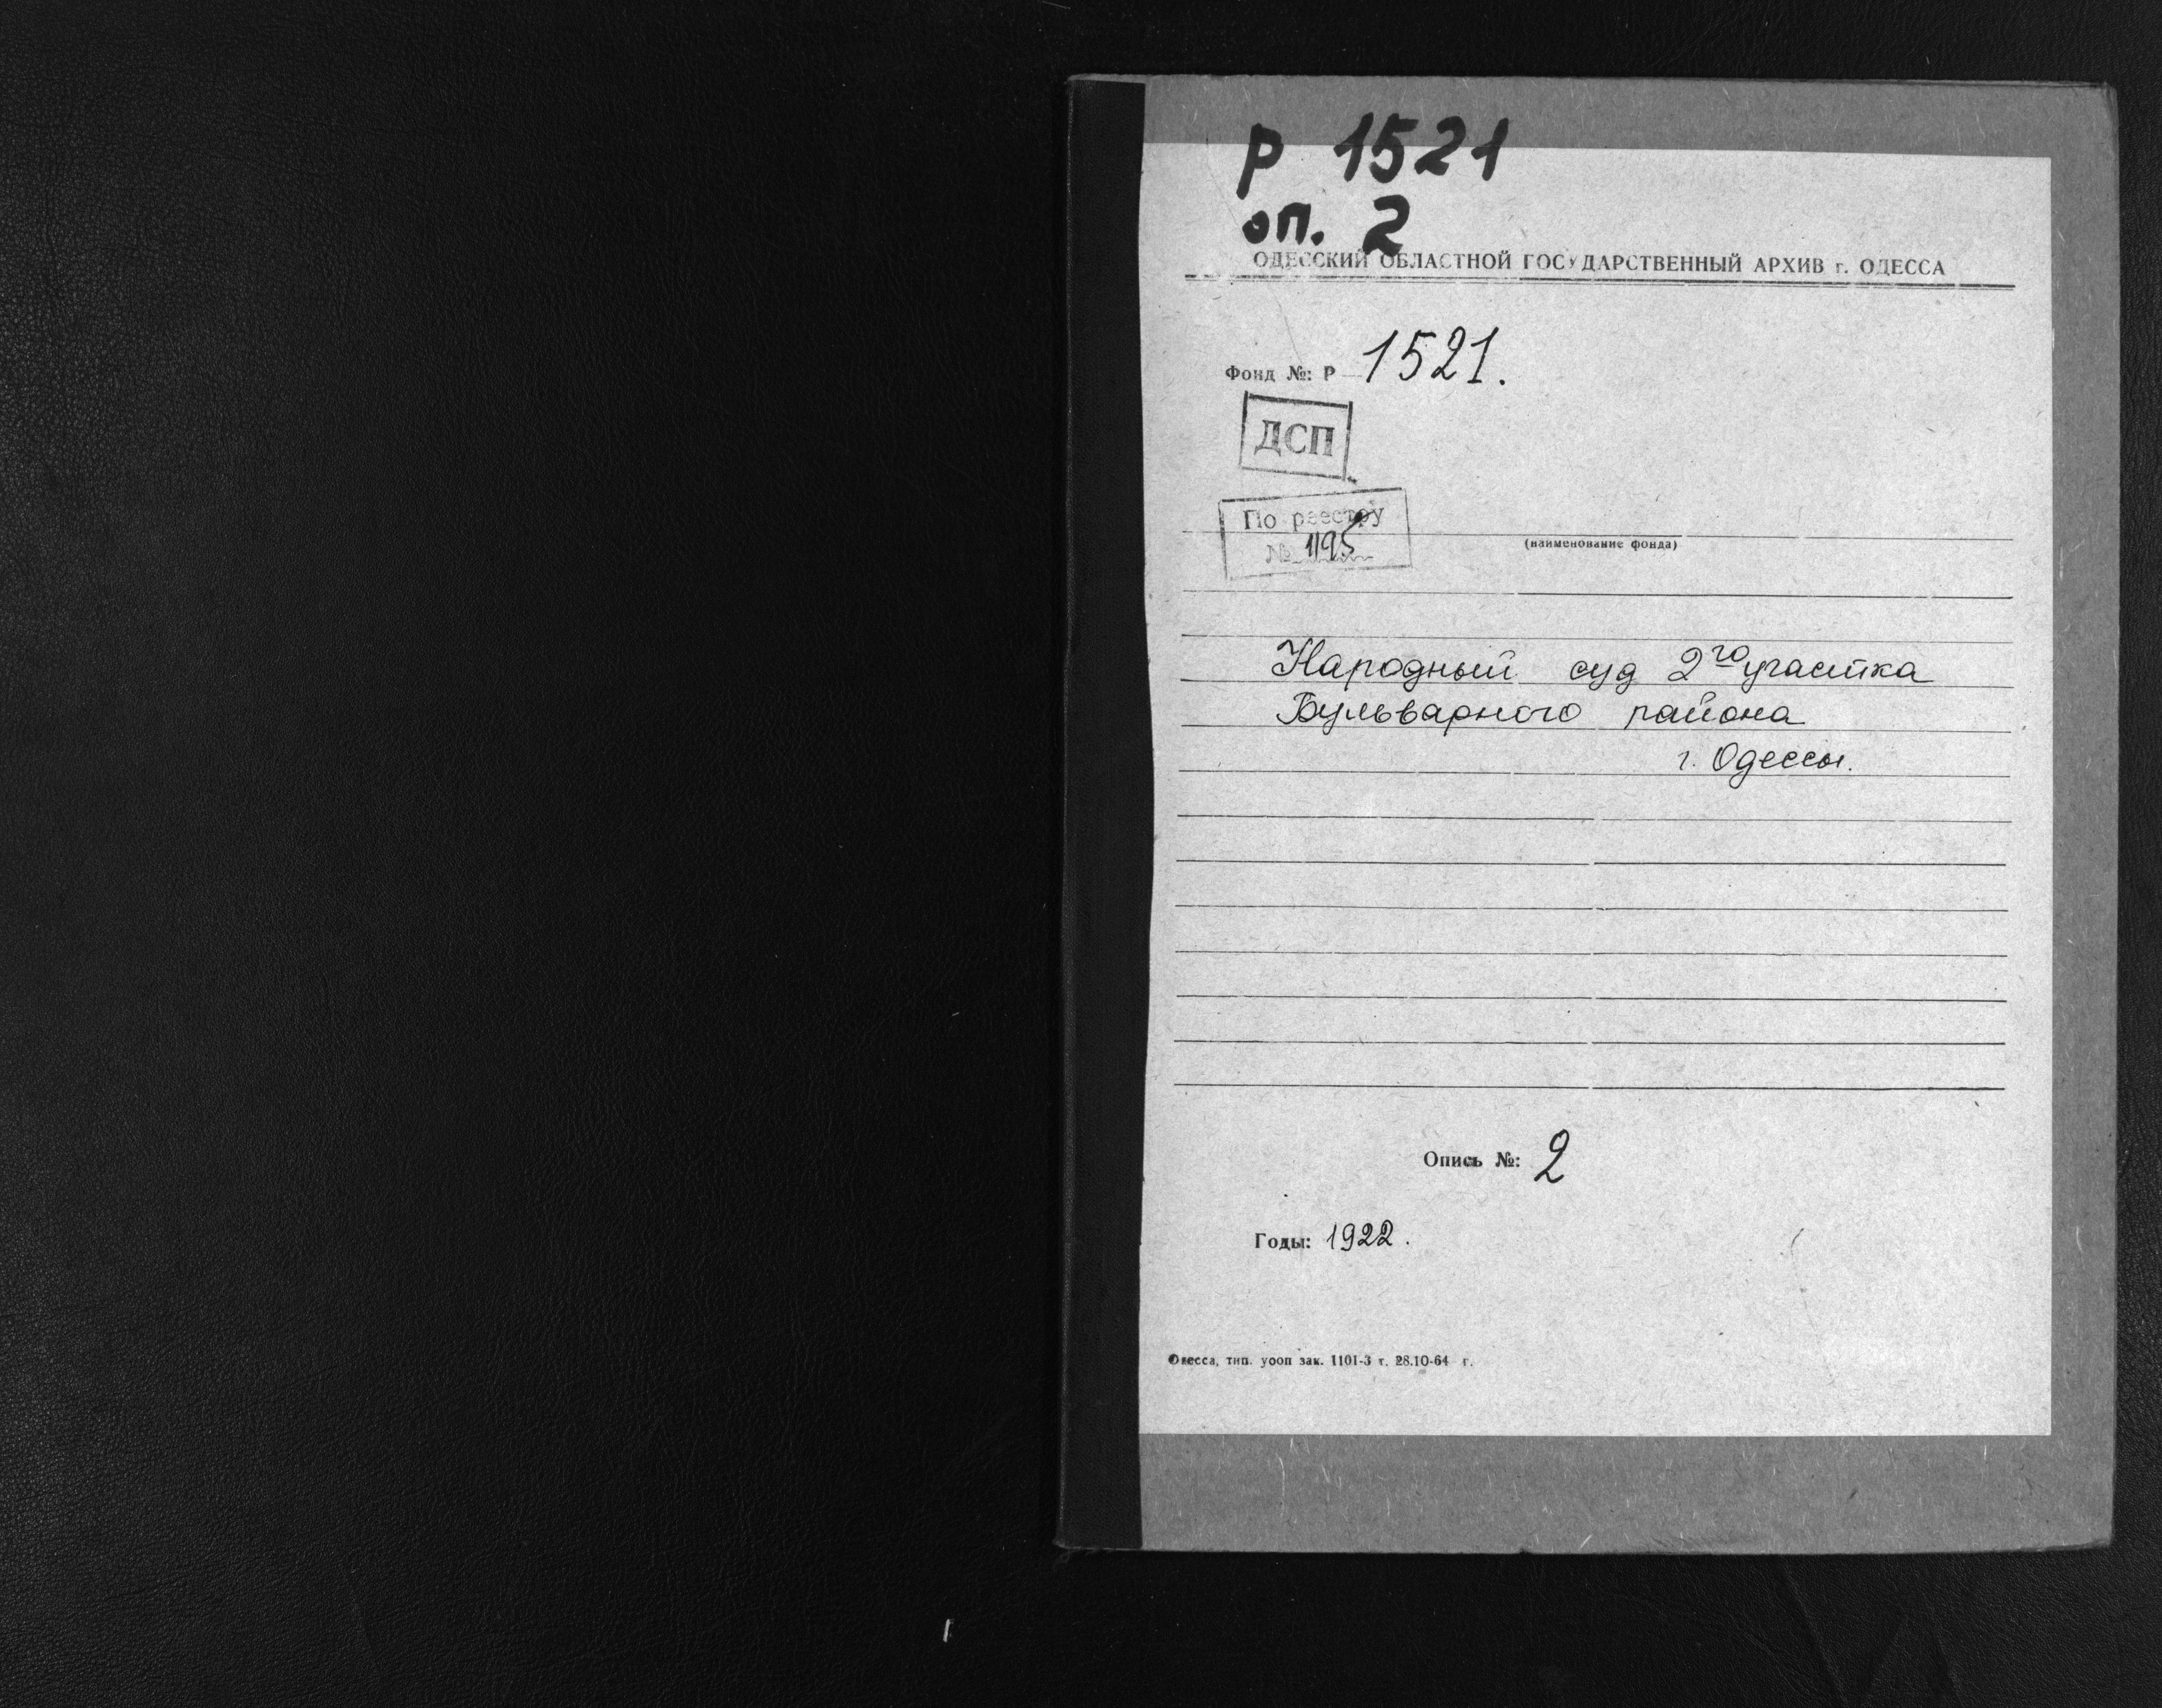 Р 1521
оп. 2
ОДЕССКИЙ ОБЛАСТНОЙ ГОСУДАРСТВЕННЫЙ АРХИВ г. ОДЕССА
Фонд №: Р 1521.
ДСП
По реестру
№ 1195
(наименование фонда)
Народный суд 2го участка
Бульварного района
г. Одессы.
Опись №: 2
Годы: 1922.
Одесса, тип. уооп зак. 1101-3 т. 28.10-64 г.